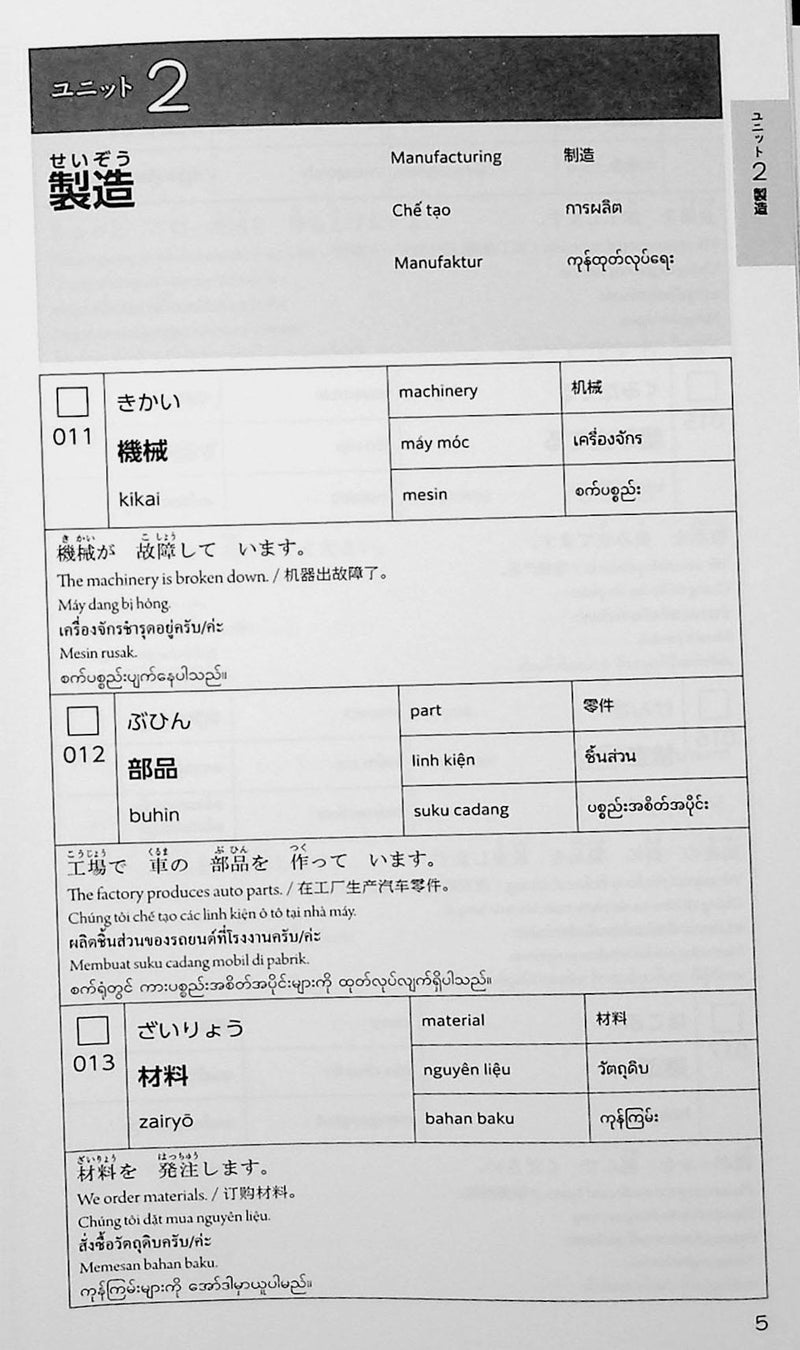 ユニット 2
せいぞう
製造
Manufacturing 制造
Chế tạo การผลิต
Manufaktur ကုန်ထုတ်လုပ်ရေး
ユニット2 製造
011
きかい
機械
kikai
machinery 机械
máy móc เครื่องจักร
mesin စက်ပစ္စည်း
きかい こしょう
機械が 故障して います。
The machinery is broken down. / 机器出故障了。
Máy đang bị hỏng.
เครื่องจักรชำรุดอยู่ครับ/ค่ะ
Mesin rusak.
စက်ပစ္စည်းပျက်နေပါသည်။
012
ぶひん
部品
buhin
part 零件
linh kiện ชิ้นส่วน
suku cadang ပစ္စည်းအစိတ်အပိုင်း
こうじょう くるま ぶひん つく
工場で 車の 部品を 作って います。
The factory produces auto parts. / 在工厂生产汽车零件。
Chúng tôi chế tạo các linh kiện ô tô tại nhà máy.
ผลิตชิ้นส่วนของรถยนต์ที่โรงงานครับ/ค่ะ
Membuat suku cadang mobil di pabrik.
စက်ရုံတွင် ကားပစ္စည်းအစိတ်အပိုင်းများကို ထုတ်လုပ်လျက်ရှိပါသည်။
013
ざいりょう
材料
zairyō
material 材料
nguyên liệu วัตถุดิบ
bahan baku ကုန်ကြမ်း
ざいりょう はっちゅう
材料を 発注します。
We order materials. / 订购材料。
Chúng tôi đặt mua nguyên liệu.
สั่งซื้อวัตถุดิบครับ/ค่ะ
Memesan bahan baku.
ကုန်ကြမ်းများကို အော်ဒါမှာယူပါမည်။
5